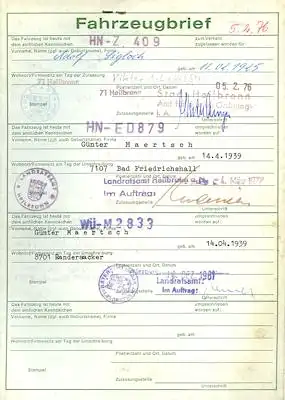 Fahrzeugbrief
5.4.76
Das Fahrzeug ist heute mit dem amtlichen Kennzeichen HN-Z 409 zum Verkehr zugelassen worden für
Vorname, Name (ggf. auch Geburtsname), Firma
Adolf geb. am
Wohnort/Firmensitz am Tag der Zulassung
71 Heilbronn
Postleitzahl, Ort und Datum
71 Heilbronn 05.2.76
Stadt Heilbronn
Stempel
I. A.
Das Fahrzeug ist heute mit dem amtlichen Kennzeichen HN-ED879 umgeschrieben worden auf:
Vorname, Name (ggf. auch Geburtsname), Firma
Günter Maertsch geb. am 14.4.1939
Wohnort/Firmensitz am Tag der Umschreibung
7107 Bad Friedrichshall
Postleitzahl, Ort und Datum
Landratsamt Heilbronn
Im Auftrag:
Stempel
Zulassungsstelle Unterschrift
Das Fahrzeug ist heute mit dem amtlichen Kennzeichen WÜ-M2833 umgeschrieben worden auf:
Vorname, Name (ggf. auch Geburtsname), Firma
Günter Maertsch geb. am 14.04.1939
Wohnort/Firmensitz am Tag der Umschreibung
8701 Randersacker
Postleitzahl, Ort und Datum
Landratsamt
Im Auftrag:
Stempel
Zulassungsstelle Unterschrift
Das Fahrzeug ist heute mit dem amtlichen Kennzeichen umgeschrieben worden auf:
Vorname, Name (ggf. auch Geburtsname), Firma
geb. am
Wohnort/Firmensitz am Tag der Umschreibung
Postleitzahl, Ort und Datum
Stempel
Zulassungsstelle Unterschrift